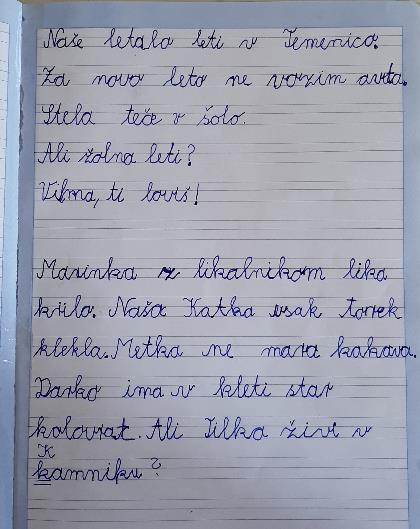 Naše letalo leti v Temenico.
Za novo leto ne vozim avta.
Stela teče v šolo.
Ali žolna leti?
Vilma, ti loviš!
Marinka z likalnikom lika
krilo. Naša Katka vsak torek
klekla. Metka ne mara kakava.
Darko ima v kleti star
kolovrat. Ali Tilka živi v
K
kamniku?